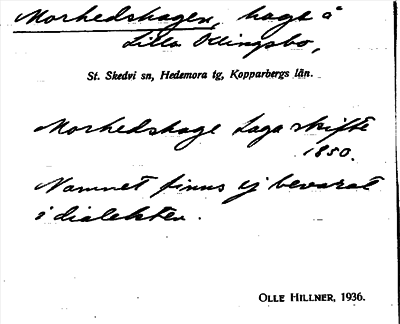 Morhedshagen, hage å
Lilla Ollingsbo,
St. Skedvi sn, Hedemora tg, Kopparbergs län.
Morhedshage Laga skifte
1850.
Namnet finns ej bevarat
i dialekten.
OLLE HILLNER, 1936.